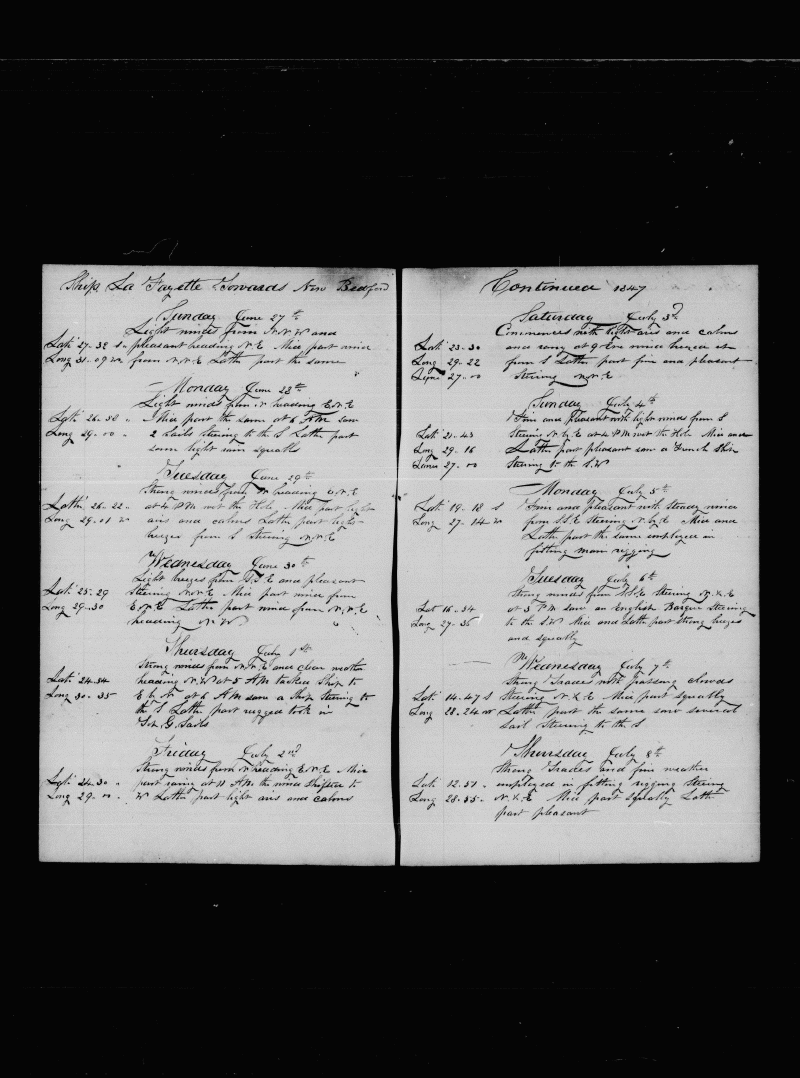 Ship La Fayette Towards New Bedford
Sunday June 27th
Light winds from N.N.W and
Lati 27-32 s pleasant heading N.E Mid part wind
Long 31-09 w from N.N.E Lattr part the same
Monday June 28th
Light winds from N heading E.N.E
Lati 26-52 " Mid part the same at 6 AM saw
Long 29-00 " 2 Sails Steering to the S Lattr part
some light rain squalls
Tuesday June 29th
Strong winds from N heading E.N.E
Latti 26-22 " at 4 PM wet the Hole Mid part light
Long 29-01 w airs and calms Lattr part light
breezes from S Steering N.N.E
Wednesday June 30th
Light breezes from S.S.E and pleasant
Lati 25-29 Steering N.N.E Mid part winds from
Long 29-30 E.N.E Lattr part winds from N.N.E
heading N.W
Thursday July 1st
Strong winds from N.N.E and clear weather
Lati 24-54 heading N.W at 5 AM tacked Ship to
Long 30-35 E b N at 6 AM saw a Ship Steering to
the S Lattr part rugged took in
T.G. Sails
Friday July 2nd
Strong winds from N heading E.N.E Mid
Lati 24-30 " part rainy at 11 AM the wind Shifted to
Long 29-00 " W Lattr part light airs and calms
Continued 1847
Saturday July 3d
Commences with light airs and calms
Lati 23-30 and rainy at 9 Eve wind breezed up
Long 29-22 from S Lattr part fine and pleasant
27-00 Steering N.N.E
Sunday July 4th
Fine and pleasant with light winds from S
Lati 21-43 Steering N.b.E at 4 PM wet the Hole Mid and
Long 29-16 Lattr part pleasant saw a French Ship
27-00 Steering to the S.W
Monday July 5th
Lati 19-18 s Fine and pleasant with Steady winds
Long 27-14 w from S.S.E Steering N.b.E Mid and
Lattr part the same employed in
fitting main rigging
Tuesday July 6th
Strong winds from S.S.E Steering N.b.E
Lat 16-54 at 5 PM saw an English Barque Steering
Long 27-36 to the S.W Mid and Lattr part Strong breezes
and squally
Wednesday July 7th
Strong Trades with passing clouds
Lati 14-47 s Steering N.b.E Mid part squally
Long 28-24 w Lattr part the same saw several
sail Steering to the S
Thursday July 8th
Strong Trades and fine weather
Lati 12-51 " employed in fitting rigging Steering
Long 28-55 " N.b.E Mid part squally Lattr
part pleasant